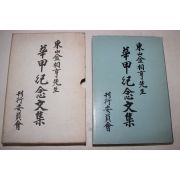 東山金相育先生
華甲紀念文集
刊行委員會
東山金相育先生
華甲紀念文集
刊行委員會